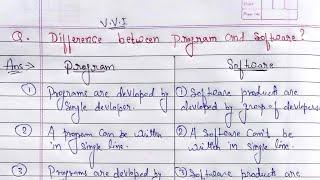 V.V.I
Q. Difference between Program and Software?
Ans:→ Program Software
① Programs are devloped by ① Software products are
single devloper. devloped by group of devlopers
② A program can be written ② A Software can't be
in single line. written in single line.
③ Programs are devloped ③ Software products are